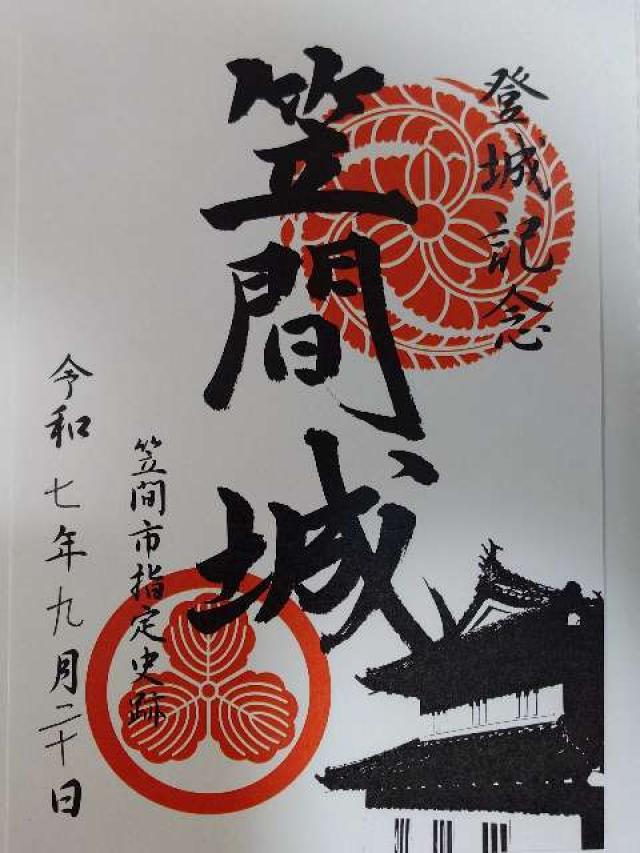 登城記念
笠間城
笠間市指定史跡
令和七年九月二十日